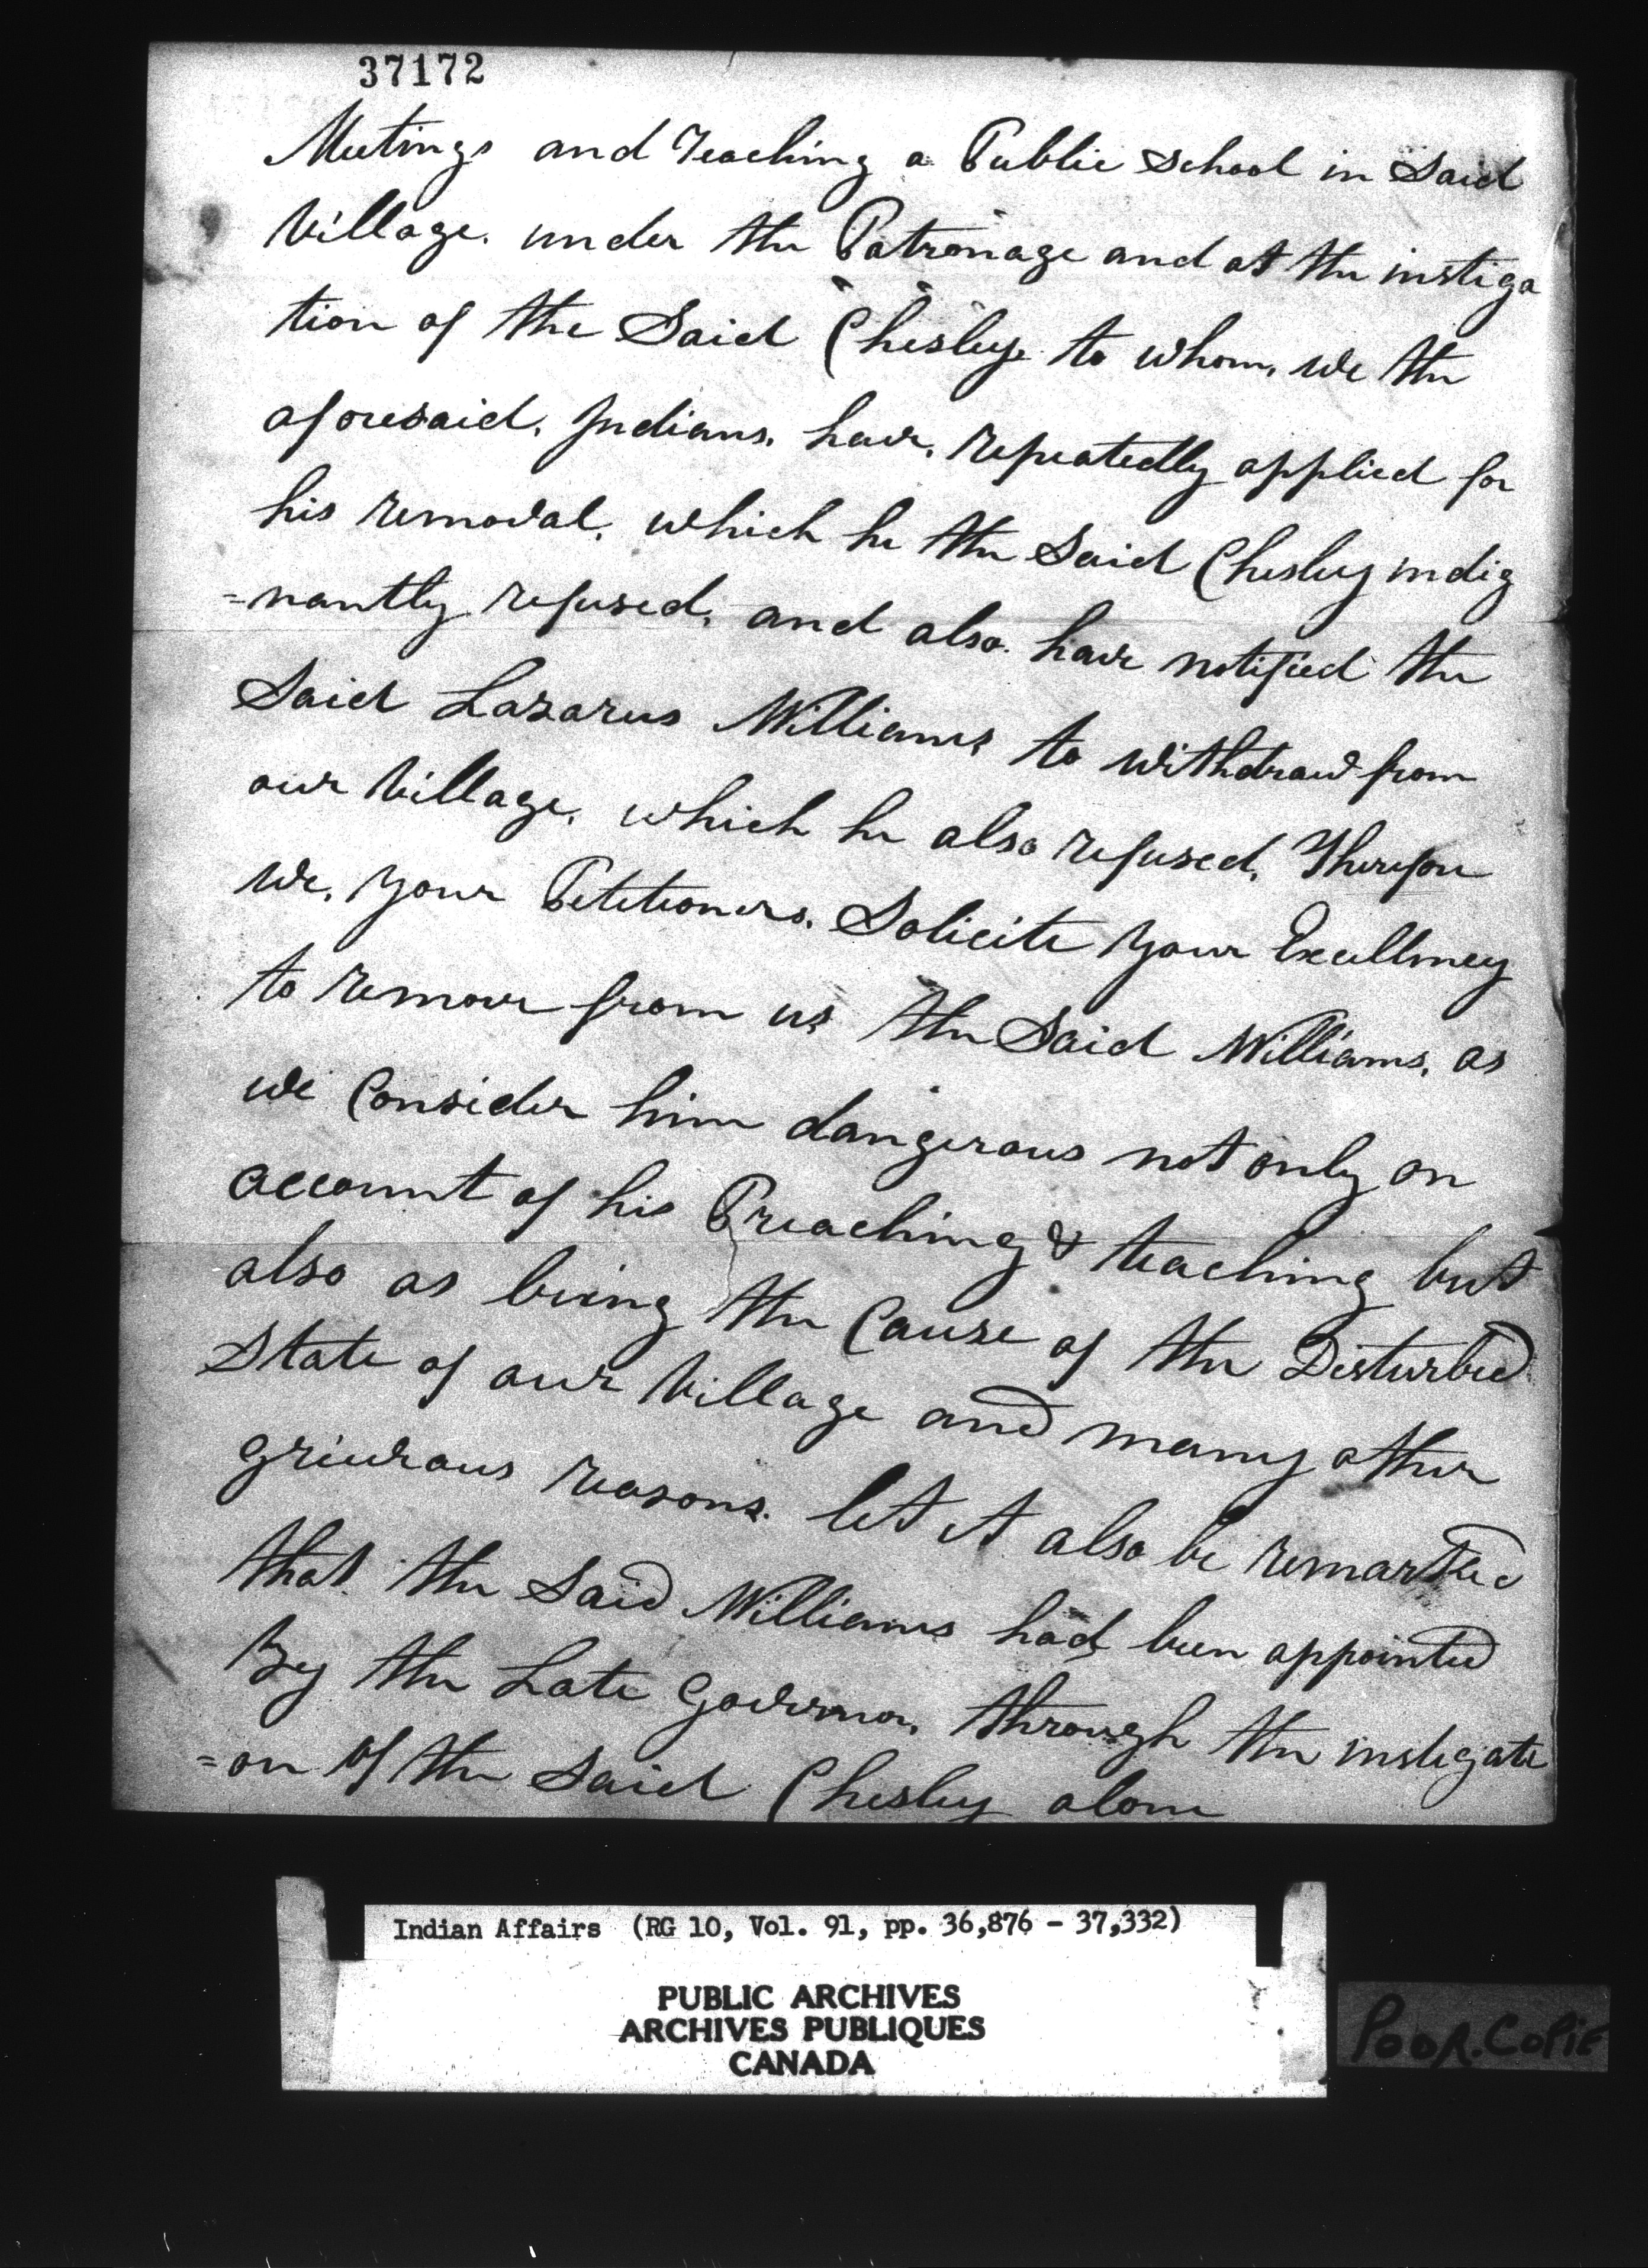 37172
Meetings and Teaching a Public School in Said
Village. under the Patronage and at the instiga
tion of the Said Chesley to whom, we the
aforesaid, Indians, have, repeatedly applied for
his removal, which he the Said Chesley indig
=nantly refused, and also have notified the
Said Lazarus Williams to withdraw from
our Village, which he also refused, Therefore
we, your Petetioners. Solicite your Excellency
to remove from us the Said Williams, as
we Consider him dangerous not only on
account of his Preaching & teaching but
also as being the Cause of the Disturbed
State of our Village and many other
grievous reasons. let it also be remarked
that the Said Williams had been appointed
By the Late Governor, through the instigati
=on of the Said Chesley alone
Indian Affairs (RG 10, Vol. 91, pp. 36,876 - 37,332)
PUBLIC ARCHIVES
ARCHIVES PUBLIQUES
CANADA
POOR.COPIE